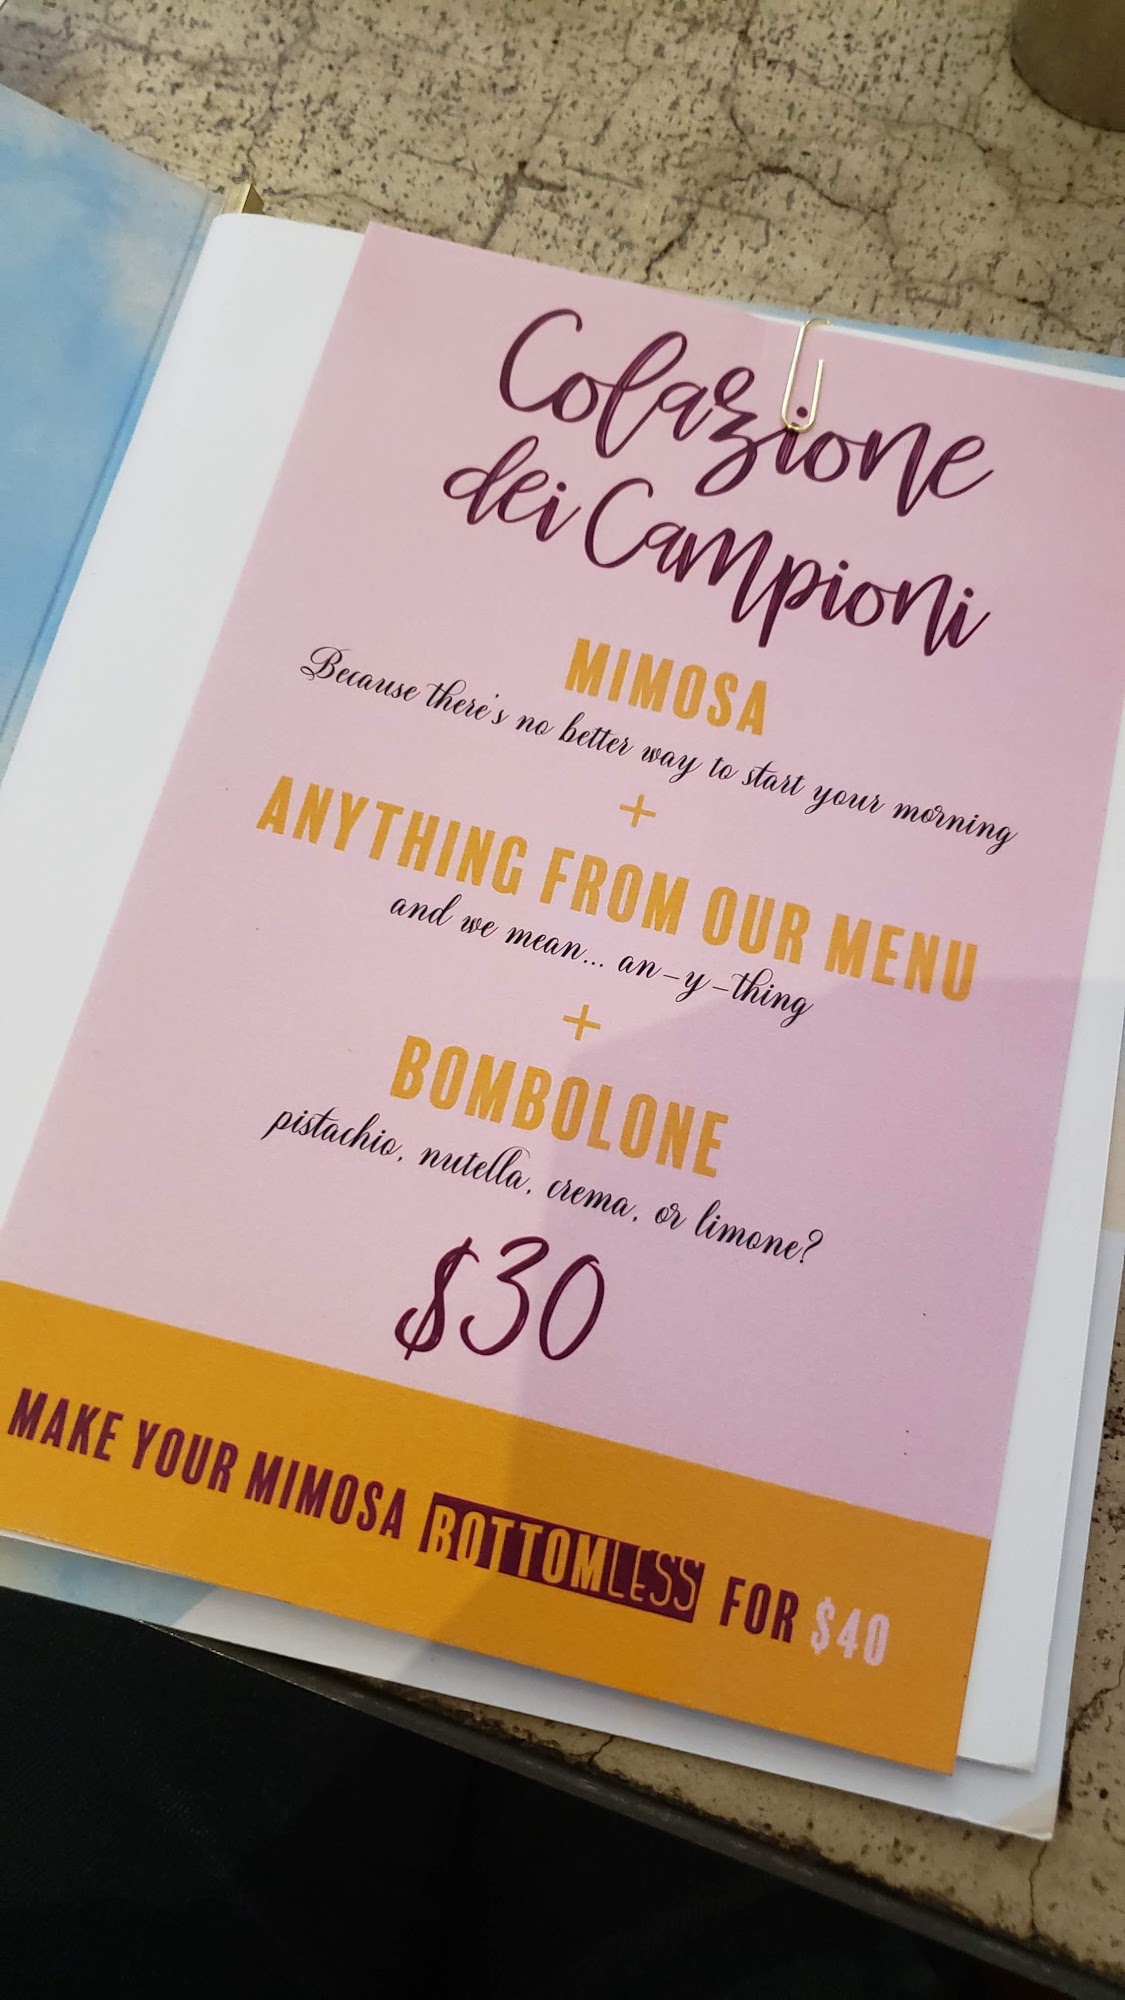 Colazione
dei Campioni
MIMOSA
Because there's no better way to start your morning
+
ANYTHING FROM OUR MENU
and we mean... an-y-thing
+
BOMBOLONE
pistachio, nutella, crema, or limone?
$30
MAKE YOUR MIMOSA BOTTOMLESS FOR $40